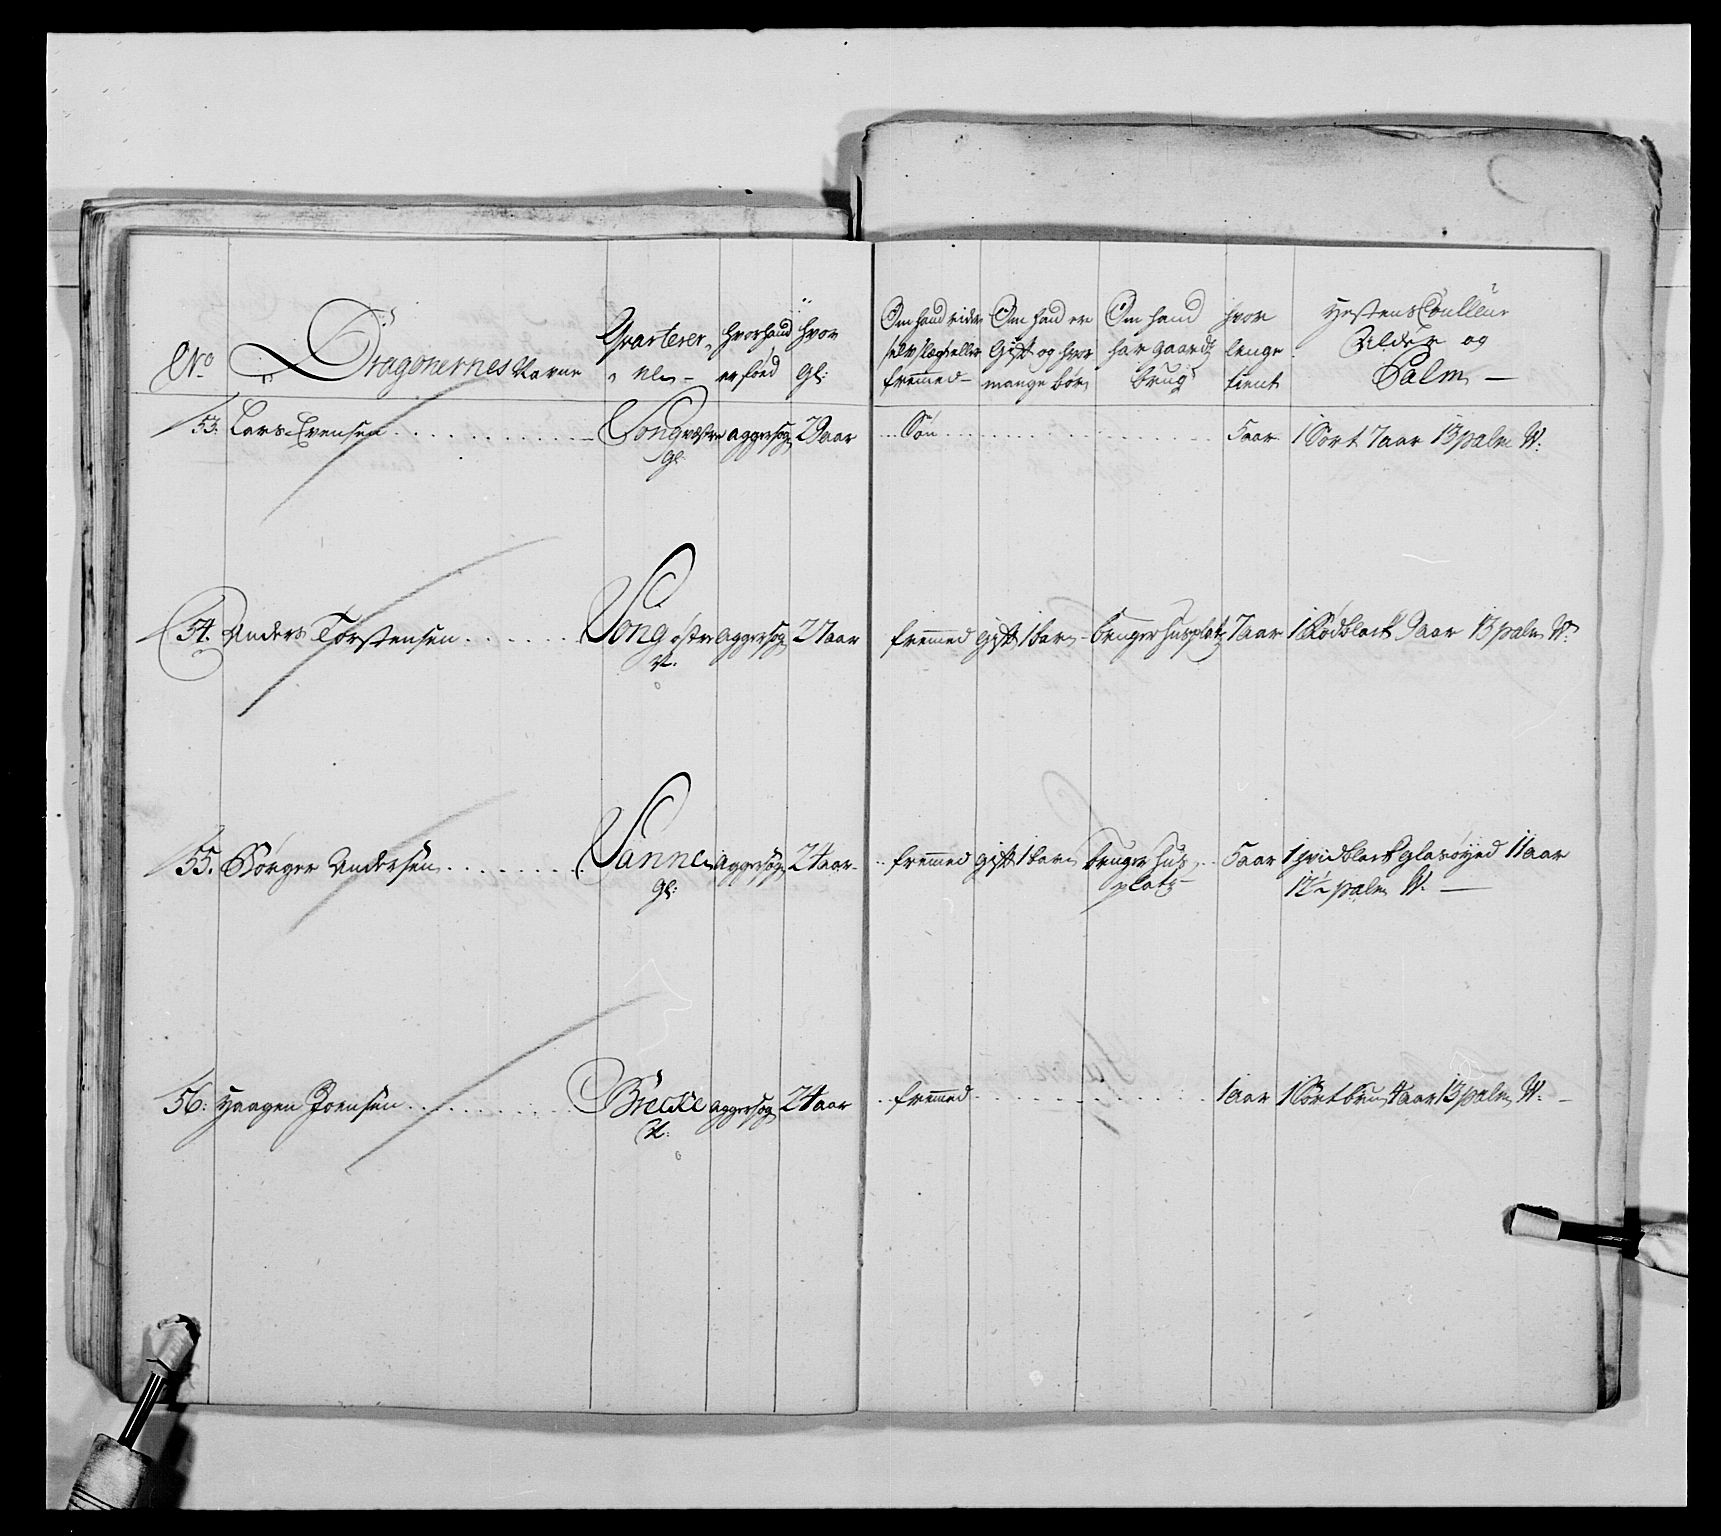 No Dragonernes Navne Qvarterer hvor hand er föed hvor Gl: Om hand rider selv slægt eller fremmed Om hand er Gift og hvor mange börn Om hand har Gaards brug hvor lenge tient Hestens Coulleur Alder og Palm
53. Lars Evensen Song vestre aggersog 29 aar Sön 5 aar 1 Sort 7 aar 13 palm W.
Gl:
54. Anders Torstensen Song östre aggersog 27 aar fremmed gift 1 barn bruger husplatz 7 aar 1 Rödblack 9 aar 13 palm W.
55. Börger Andersen Sanne aggersog 24 aar fremmed gift 1 barn bruger hus 5 aar 1 hvidblack glasöyed 11 aar
Gl: platz 12½ palm W.
56. Haagen Joensen Brecke aggersog 24 aar fremmed 1 aar 1 Sortbrun 4 aar 13 palm W.